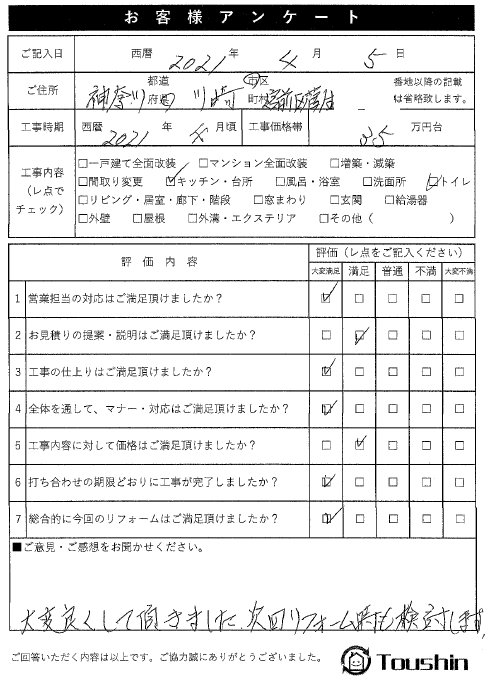 お客様アンケート
ご記入日 西暦 2021 年 4 月 5 日
ご住所 神奈川 都道府県 川崎 市区町村 宮前区菅生 番地以降の記載は省略致します。
工事時期 西暦 2021 年 4 月頃 工事価格帯 35 万円台
工事内容（レ点でチェック）
□一戸建て全面改装 □マンション全面改装 □増築・減築
□間取り変更 ☑キッチン・台所 □風呂・浴室 □洗面所 ☑トイレ
□リビング・居室・廊下・階段 □窓まわり □玄関 □給湯器
□外壁 □屋根 □外溝・エクステリア □その他（ ）
評価内容 評価（レ点をご記入ください）
大変満足 満足 普通 不満 大変不満
1 営業担当の対応はご満足頂けましたか？ ☑ □ □ □ □
2 お見積りの提案・説明はご満足頂けましたか？ □ ☑ □ □ □
3 工事の仕上りはご満足頂けましたか？ ☑ □ □ □ □
4 全体を通して、マナー・対応はご満足頂けましたか？ ☑ □ □ □ □
5 工事内容に対して価格はご満足頂けましたか？ □ ☑ □ □ □
6 打ち合わせの期限どおりに工事が完了しましたか？ ☑ □ □ □ □
7 総合的に今回のリフォームはご満足頂けましたか？ ☑ □ □ □ □
■ご意見・ご感想をお聞かせください。
大変良くして頂きました。次回リフォーム時も検討します。
ご回答いただく内容は以上です。ご協力誠にありがとうございました。
Toushin